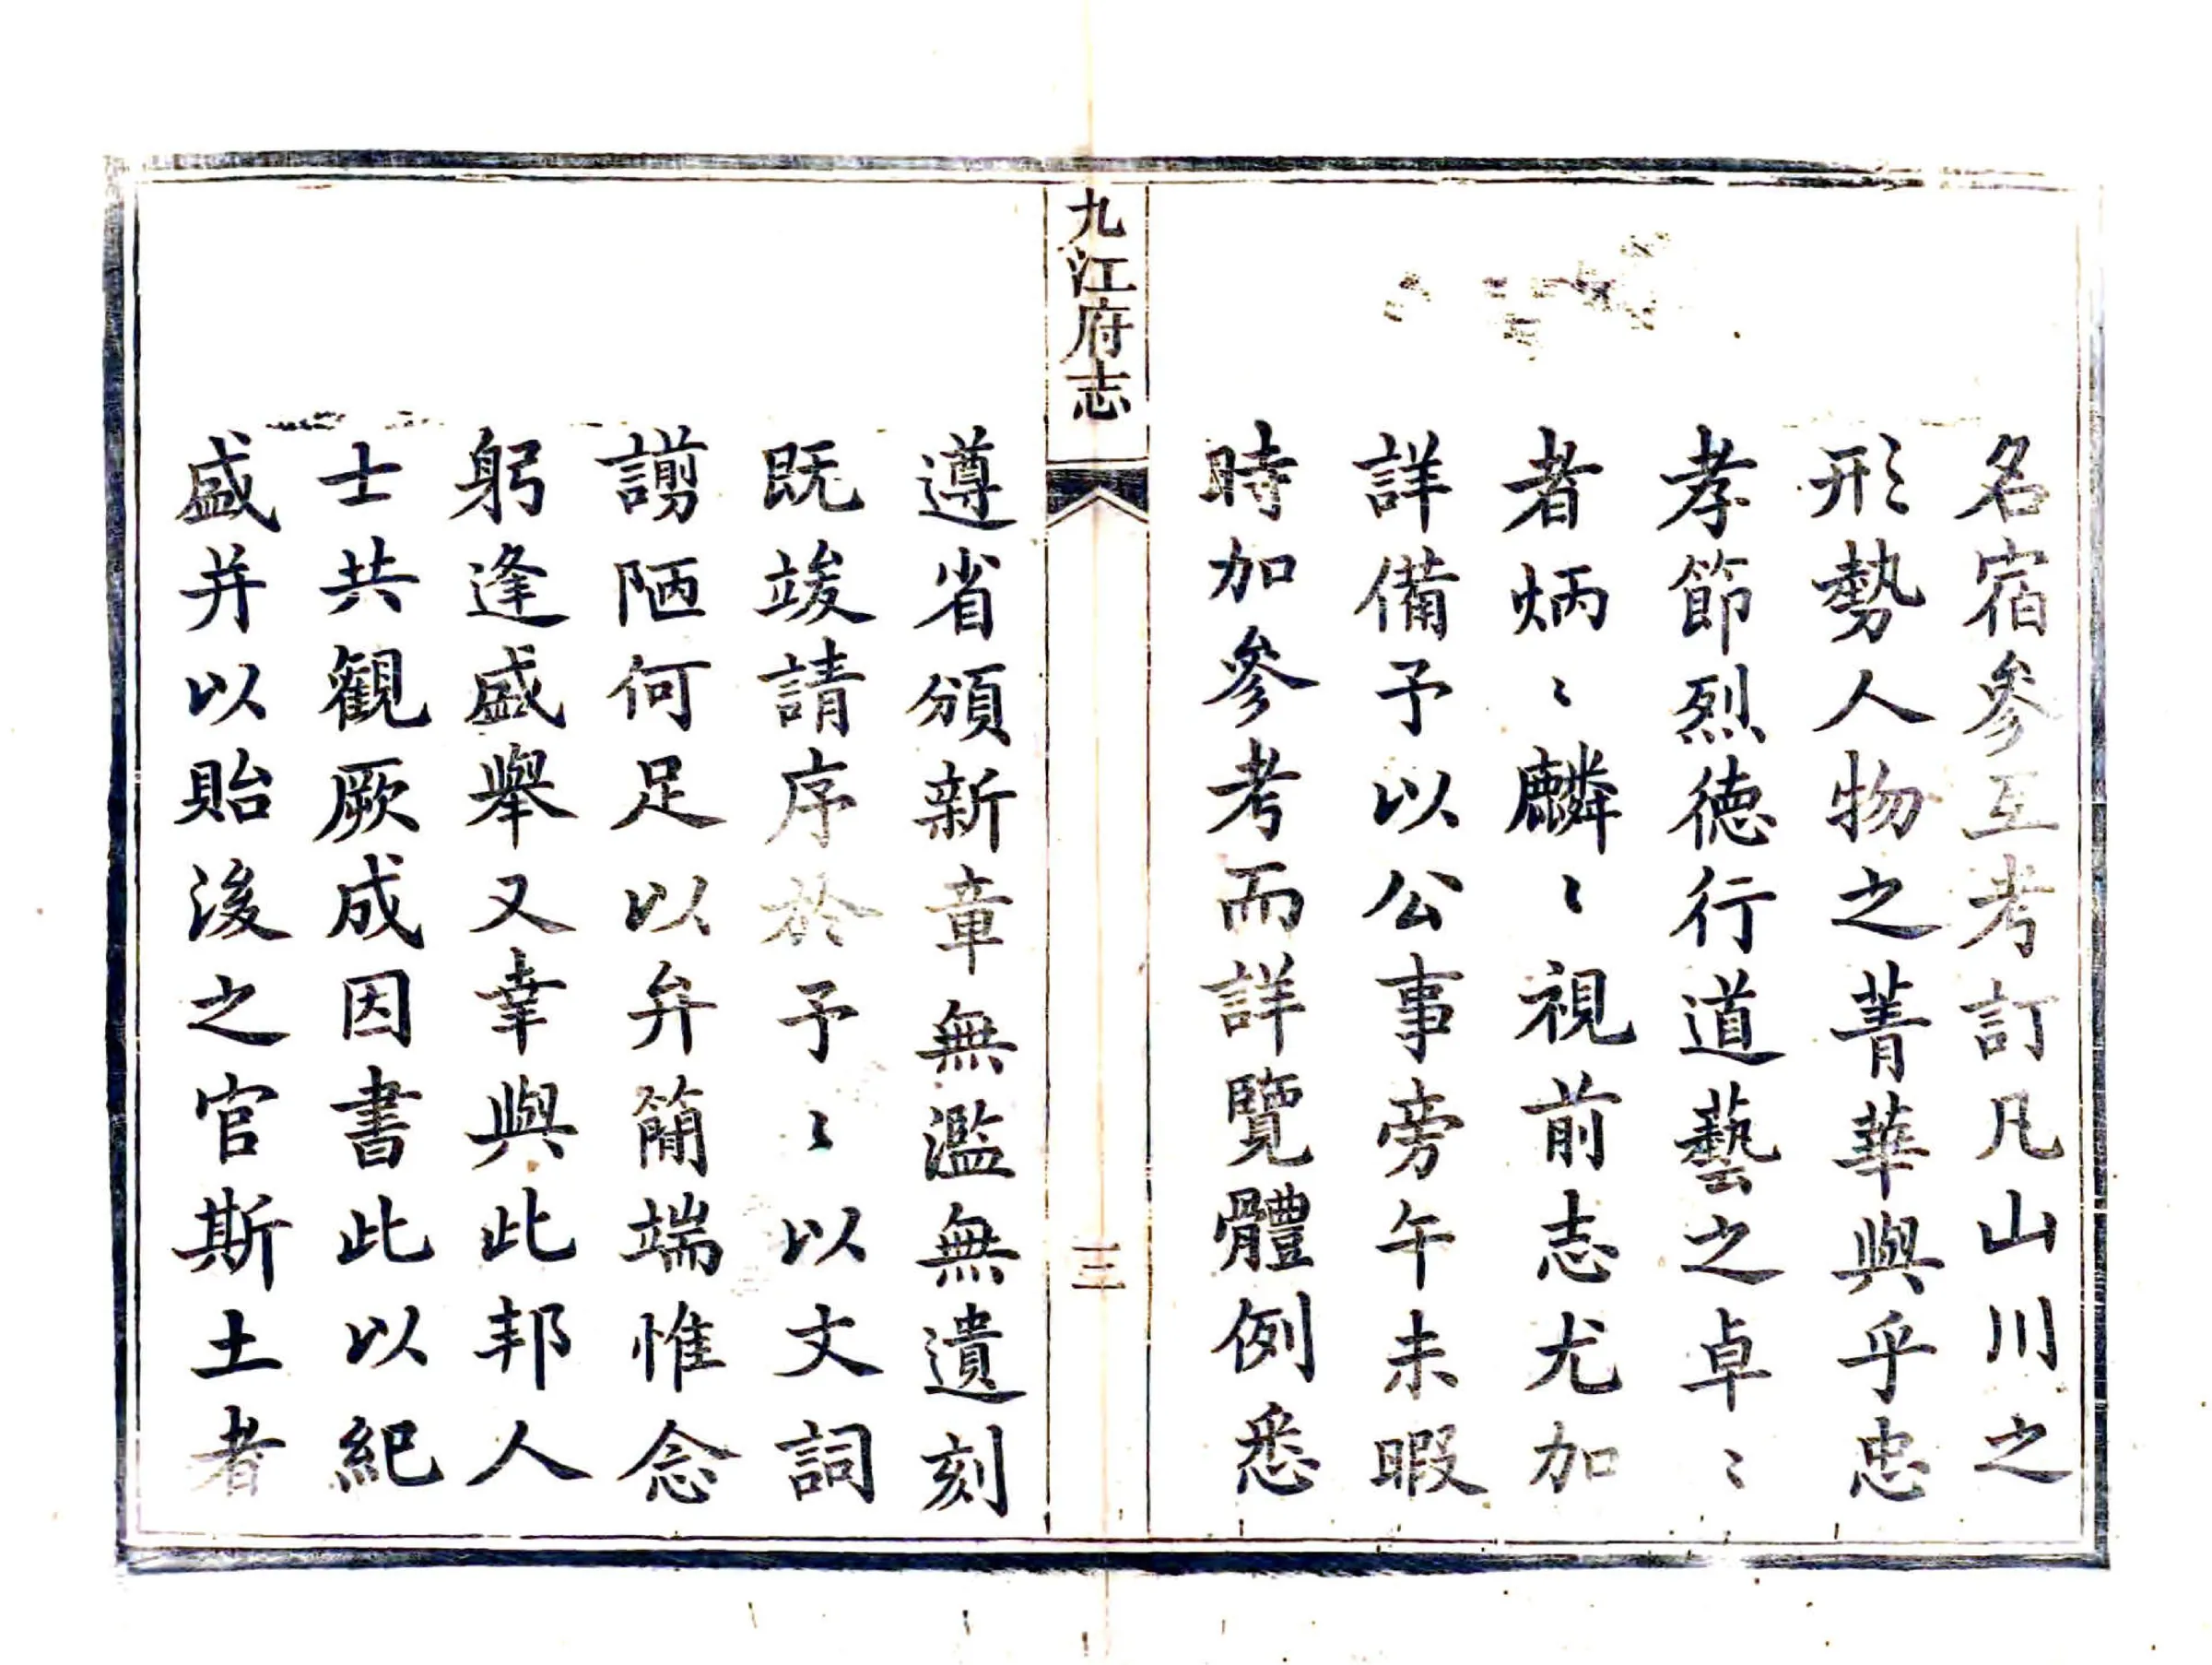 名宿參互考訂凡山川之
形勢人物之菁華與乎忠
孝節烈德行道藝之卓〻
者炳〻麟〻視前志尤加
詳備予以公事旁午未暇
時加參考而詳覽體例悉
九江府志
三
遵省頒新章無濫無遺刻
既竣請序於予〻以文詞
謭陋何足以弁簡端惟念
躬逢盛舉又幸與此邦人
士共觀厥成因書此以紀
盛并以貽後之官斯土者